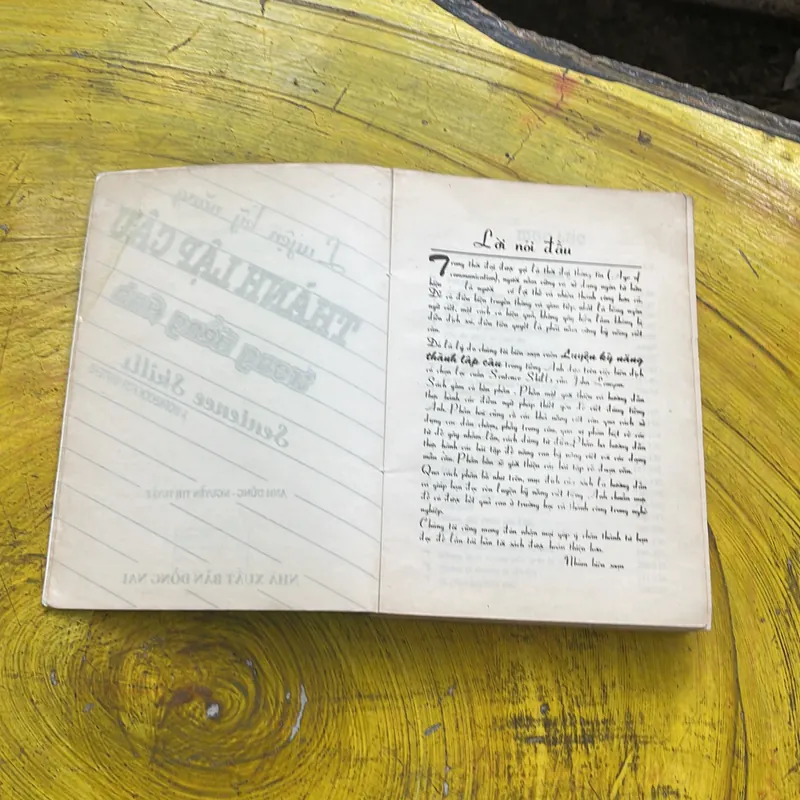 Luyện kỹ năng
THÀNH LẬP CÂU
trong tiếng Anh
Sentence Skills
ANH DŨNG - NGUYỄN THỊ TUYẾT
NHÀ XUẤT BẢN ĐỒNG NAI
Lời nói đầu
Trong thời đại được gọi là thời đại thông tin (Age of
communication), người nắm vững và sử dụng ngôn từ hữu
hiệu là người có vị thế và nhiều thành công hơn cả.
Để có điều kiện truyền thông và giao tiếp, nhất là bằng ngôn
ngữ viết, một cách có hiệu quả, không gây hiểu lầm thì
điều đầu tiên quyết là phải nắm vững kỹ năng viết
câu.
Đó là lý do chúng tôi biên soạn cuốn Luyện kỹ năng
thành lập câu trong tiếng Anh dựa trên việc biên dịch
và chọn lọc cuốn Sentence Skills của John Langan.
Sách gồm có bốn phần. Phần một giới thiệu và hướng dẫn
thực hành các điểm ngữ pháp thiết yếu để viết đúng tiếng
Anh. Phần hai củng cố các khả năng viết câu qua cách sử
dụng các dấu chấm, phẩy trong câu, qua sự phân biệt về các
từ dễ gây nhầm lẫn, cách dùng từ điển. Phần ba hướng dẫn
thực hành các bài tập để nâng cao kỹ năng viết và xây dựng
mẫu câu. Phần bốn sẽ giới thiệu các bài tập về đoạn văn.
Qua cách phân bố như trên, mục đích của sách là hướng dẫn
và giúp bạn đọc rèn luyện kỹ năng viết tiếng Anh chuẩn mực
để có được kết quả cao ở trường học và thành công trong nghề
nghiệp.
Chúng tôi cũng mong đón nhận mọi góp ý chân thành từ bạn
đọc để lần tái bản tới sách được hoàn thiện hơn.
Nhóm biên soạn